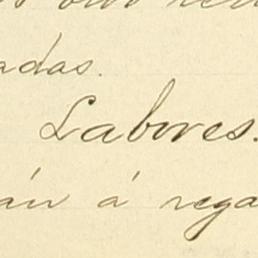 adas.
Labores.
án á rega